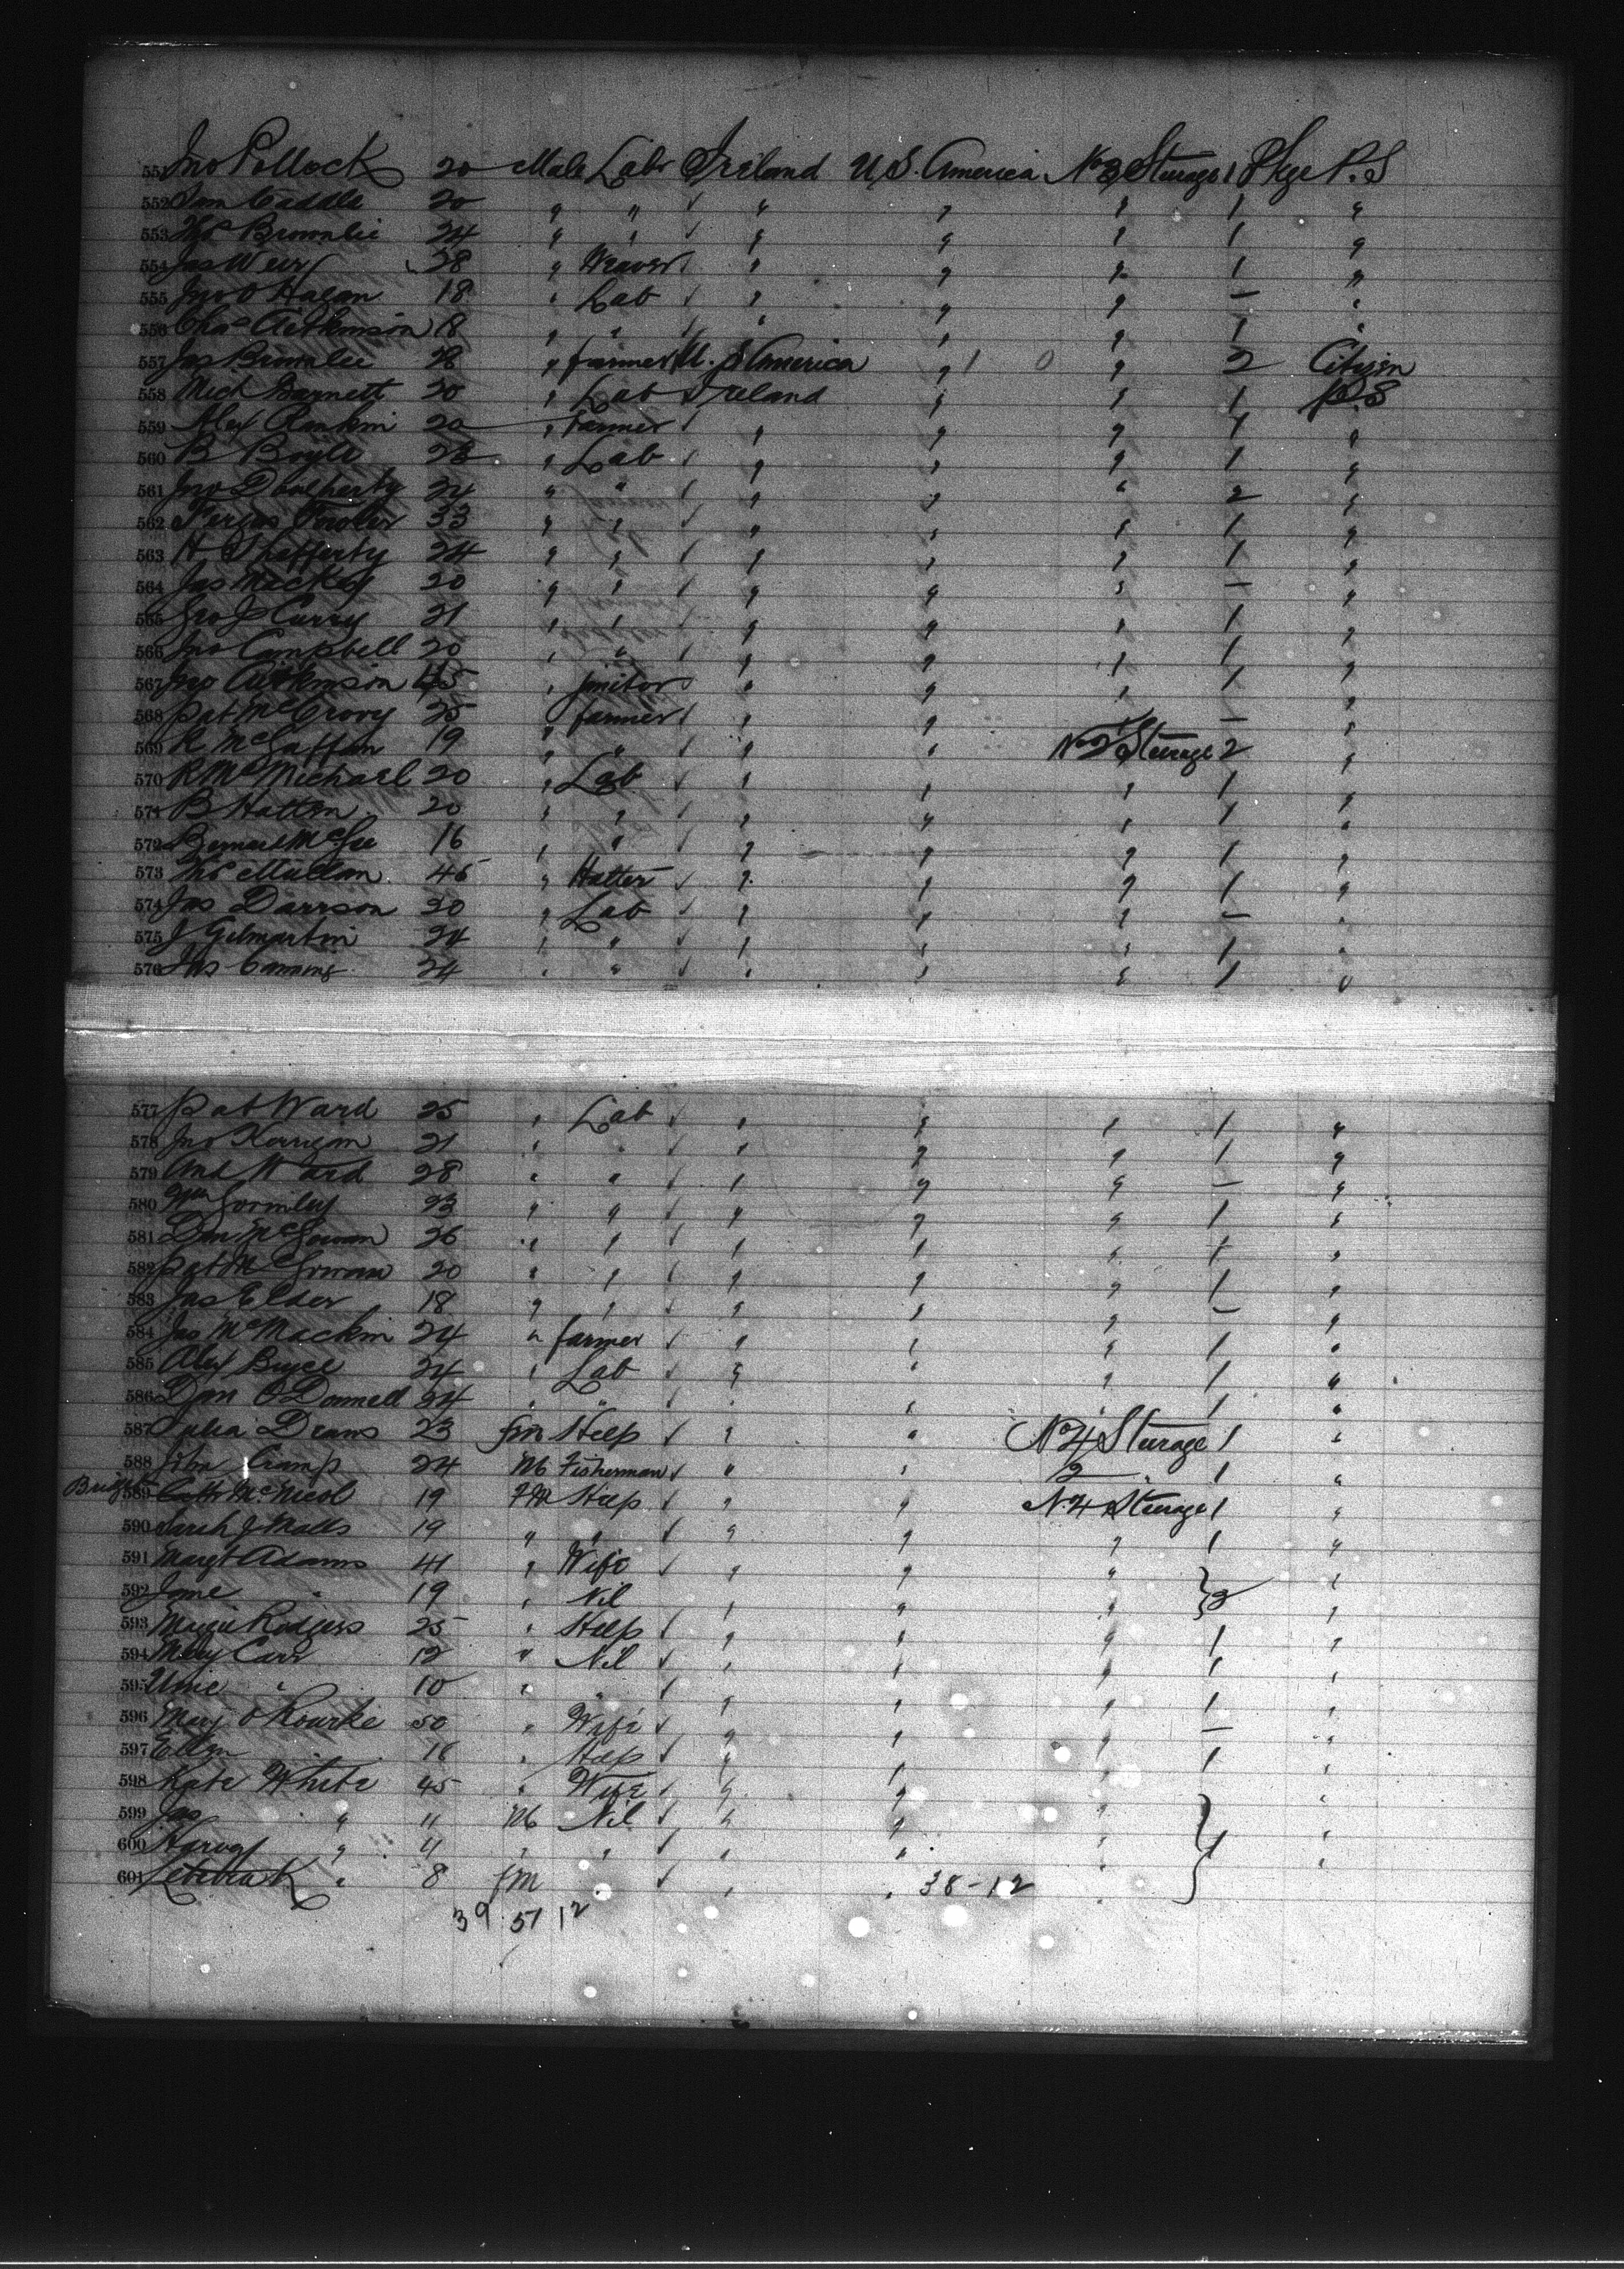 551 Jno Pollock 20 Male Lab Ireland U.S. America No 3 Sturage 1 Pkge P.S
552 Sam Caddle 20 " " ✓ " " " 1 "
553 Thos Brownlie 24 " " ✓ " " " 1 "
554 Jas Weir 28 " Weaver ✓ " " " 1 "
555 Jno O Hagan 18 " Lab ✓ " " " — "
556 Chas Aitkinson 18 " " ✓ " " " 1 "
557 Jas Brownlee 28 " farmer U. S America " 1 0 " 2 Citizen
558 Mich Barnett 20 " Lab ✓ Ireland " " 1 P.S
559 Alex Rankin 20 " Farmer ✓ " " " 1 "
560 B Boyle 28 " Lab ✓ " " " 1 "
561 Jno Dougherty 24 " " ✓ " " " 2 "
562 Fergus Fowler 33 " " ✓ " " " 1 "
563 H Shafferty 24 " " ✓ " " " 1 "
564 Jas Mackey 20 " " ✓ " " " — "
565 Geo J Curry 21 " " ✓ " " " 1 "
566 Jno Campbell 20 " " ✓ " " " 1 "
567 Jno Aitkinson 45 " janitor " " " 1 "
568 Pat McCrory 25 " farmer ✓ " " " — "
569 R McGaffan 19 " " ✓ " " No 2 Sturage 2 "
570 R McMichael 20 " Lab ✓ " " " 1 "
571 B Hatton 20 " " ✓ " " " 1 "
572 Bernard McGee 16 " " ✓ " " " 1 "
573 Thos Mullan 45 " Hatter ✓ " " " 1 "
574 Jas Darrson 20 " Lab ✓ " " " — "
575 J Gilmartin 24 " " ✓ " " " 1 "
576 Jas Canning 24 " " ✓ " " " 1 "
577 Pat Ward 25 " Lab ✓ " " " 1 "
578 Jno Kerrigan 21 " " ✓ " " " 1 "
579 And Ward 28 " " ✓ " " " — "
580 Wm Gormley 23 " " ✓ " " " 1 "
581 Dan McGowan 26 " " ✓ " " " 1 "
582 Pat McGowan 20 " " ✓ " " " 1 "
583 Jas Elder 18 " " ✓ " " " — "
584 Jas McMackin 24 " farmer ✓ " " " 1 "
585 Alex Bryce 24 " Lab ✓ " " " 1 "
586 Dan O'Donnell 24 " " ✓ " " " 1 "
587 Julia Deans 23 fm Help ✓ " " No 4 Sturage 1 "
588 John Cramp 24 M Fisherman ✓ " " 2 " 1 "
589 Bridget McNicol 19 FM Help " " No 4 Sturage 1 "
590 Sarah J Matts 19 " " ✓ " " " 1 "
591 Margt Adams 41 " Wife ✓ " " "
592 Jane " 19 " Nil " " " } 2 "
593 Maggie Rodgers 25 " Help ✓ " " " 1 "
594 Mary Carr 12 " Nil ✓ " " " 1
595 " 10 " " ✓ " " " 1 "
596 Mary O Rourke 50 " Wife ✓ " " " — "
597 Ellen " 16 " Help ✓ " " " 1 "
598 Kate White 45 " Wife ✓ " " "
599 Jas " 11 M Nil ✓ " " "
600 " 11 " " ✓ " " " } 1 "
601 " 8 fm " ✓ " " 38-12 "
39 51 12